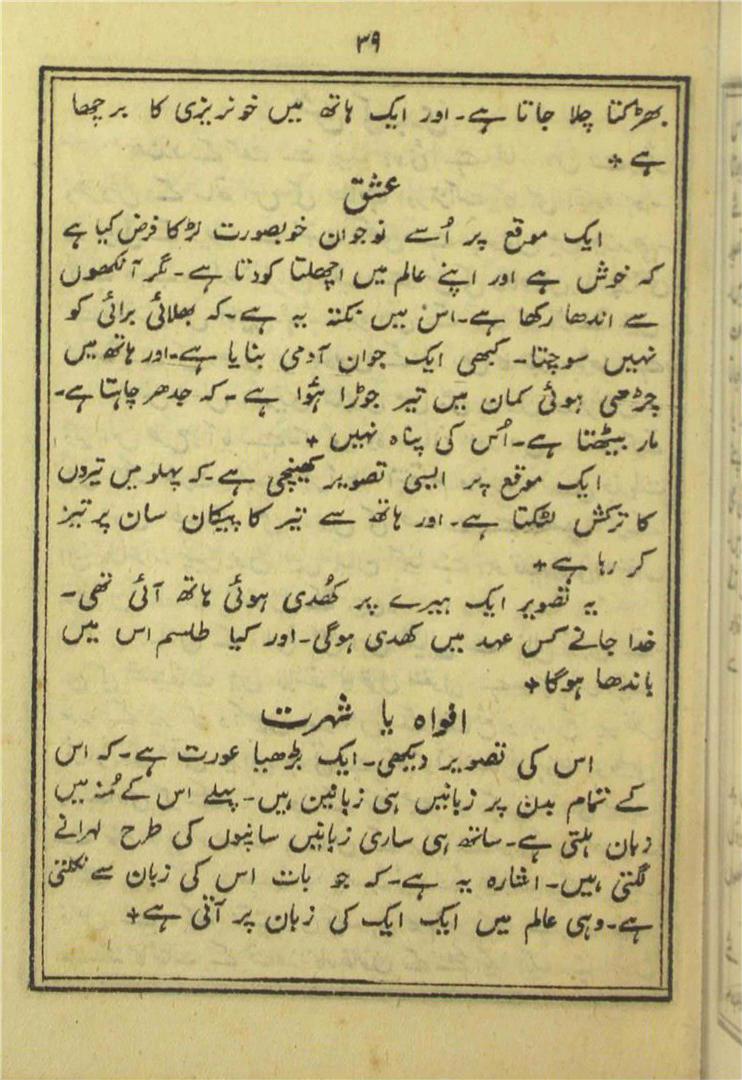 ۳۹
بھڑکتا چلا جاتا ہے۔ اور ایک ہاتھ میں خونریزی کا برچھا
ہے +
عشق
ایک موقع پر اُسے نوجوان خوبصورت لڑکا فرض کیا ہے
کہ خوش ہے اور اپنے عالم میں اچھلتا کودتا ہے۔ مگر آنکھوں
سے اندھا رکھا ہے۔ اس میں نکتہ یہ ہے۔ کہ بھلائی برائی کو
نہیں سوچتا۔ کبھی ایک جوان آدمی بنایا ہے۔ اور ہاتھ میں
چڑھی ہوئی کمان میں تیر جوڑا ہؤا ہے۔ کہ جدھر چاہتا ہے۔
مار بیٹھتا ہے۔ اُس کی پناہ نہیں +
ایک موقع پر ایسی تصویر کھینچی ہے۔ کہ پہلو میں تیروں
کا ترکش لٹکتا ہے۔ اور ہاتھ سے تیر کا پیکان سان پر تیز
کر رہا ہے +
یہ تصویر ایک ہیرے پر کھُدی ہوئی ہاتھ آئی تھی۔
خدا جانے کس عہد میں کھدی ہوگی۔ اور کیا طلسم اس میں
باندھا ہوگا +
افواہ یا شہرت
اس کی تصویر دیکھی۔ ایک بڑھیا عورت ہے۔ کہ اس
کے تمام بدن پر زبانیں ہی زبانیں ہیں۔ پہلے اس کے مُنہ میں
زبان ہلتی ہے۔ ساتھ ہی ساری زبانیں سانپوں کی طرح لہرانے
لگتی ہیں۔ اشارہ یہ ہے۔ کہ جو بات اس کی زبان سے نکلتی
ہے۔ وہی عالم میں ایک ایک کی زبان پر آتی ہے +